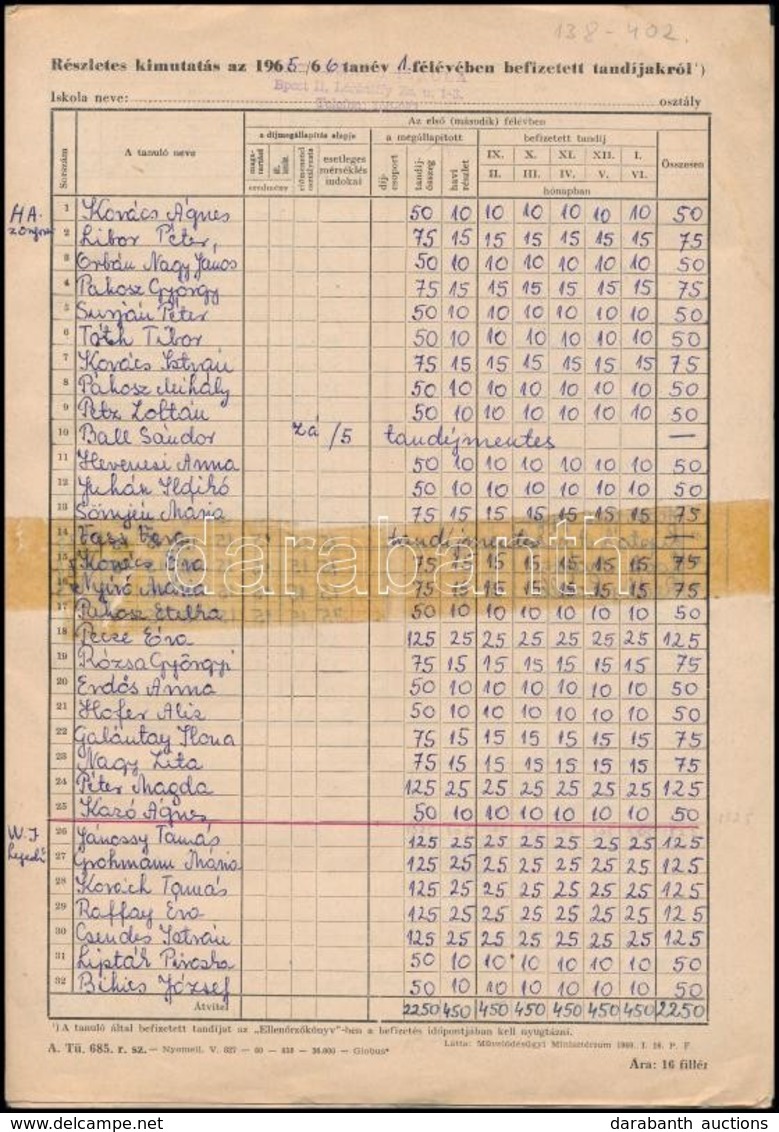 138-402.
Részletes kimutatás az 1965/66 tanév 1. félévében befizetett tandíjakról¹)
Iskola neve: osztály
Sorszám
A tanuló neve
Az első (második) félévben
a díjmegállapítás alapja
a megállapított
befizetett tandíj
Összesen
esetleges mérséklés indokai
díj-csoport
tandíj-összeg
havi részlet
IX. X. XI. XII. I.
II. III. IV. V. VI.
eredmény
hónapban
HA.
zongora
1 Kovács Ágnes 50 10 10 10 10 10 10 50
2 Libor Péter, 75 15 15 15 15 15 15 75
3 Orbán Nagy János 50 10 10 10 10 10 10 50
4 Pakosz György 75 15 15 15 15 15 15 75
5 Surján Péter 50 10 10 10 10 10 10 50
6 Tóth Tibor 50 10 10 10 10 10 10 50
7 Kovács István 75 15 15 15 15 15 15 75
8 Pákosz Mihály 50 10 10 10 10 10 10 50
9 Petz Zoltán 50 10 10 10 10 10 10 50
10 Ball Sándor zá /5 tandíjmentes —
11 Hevenesi Anna 50 10 10 10 10 10 10 50
12 Juhár Ildikó 50 10 10 10 10 10 10 50
13 Sömjén Mária 75 15 15 15 15 15 15 75
14 Éva tandíjmentes
15 Kovács Éva 75 15 15 15 15 15 15 75
16 Nyirő Mária 75 15 15 15 15 15 15 75
17 Pakosz Etelka 50 10 10 10 10 10 10 50
18 Pecze Éva 125 25 25 25 25 25 25 125
19 Rózsa Györgyi 75 15 15 15 15 15 15 75
20 Erdős Anna 50 10 10 10 10 10 10 50
21 Hofer Aliz 50 10 10 10 10 10 10 50
22 Galántay Ilona 75 15 15 15 15 15 15 75
23 Nagy Lita 75 15 15 15 15 15 15 75
24 Péter Magda 125 25 25 25 25 25 25 125
25 Kazó Ágnes 50 10 10 10 10 10 10 50
W. J
hegedű
26 Jánossy Tamás 125 25 25 25 25 25 25 125
27 Grohmann Mária 125 25 25 25 25 25 25 125
28 Kovách Tamás 125 25 25 25 25 25 25 125
29 Raffay Éva 125 25 25 25 25 25 25 125
30 Csendes István 125 25 25 25 25 25 25 125
31 Lipták Piroska 50 10 10 10 10 10 10 50
32 Bihics József 50 10 10 10 10 10 10 50
Átvitel 2250 450 450 450 450 450 450 2250
¹) A tanuló által befizetett tandíjat az „Ellenőrzőkönyv"-ben a befizetés időpontjában kell nyugtázni.
A. Tü. 685. r. sz. — Nyomell. V. 627 — 60 — 838 — 36.000 — Globus*
Látta: Művelődésügyi Minisztérium 1960. I. 16. P. F
Ára: 16 fillér
darabanth
darabanth auctions